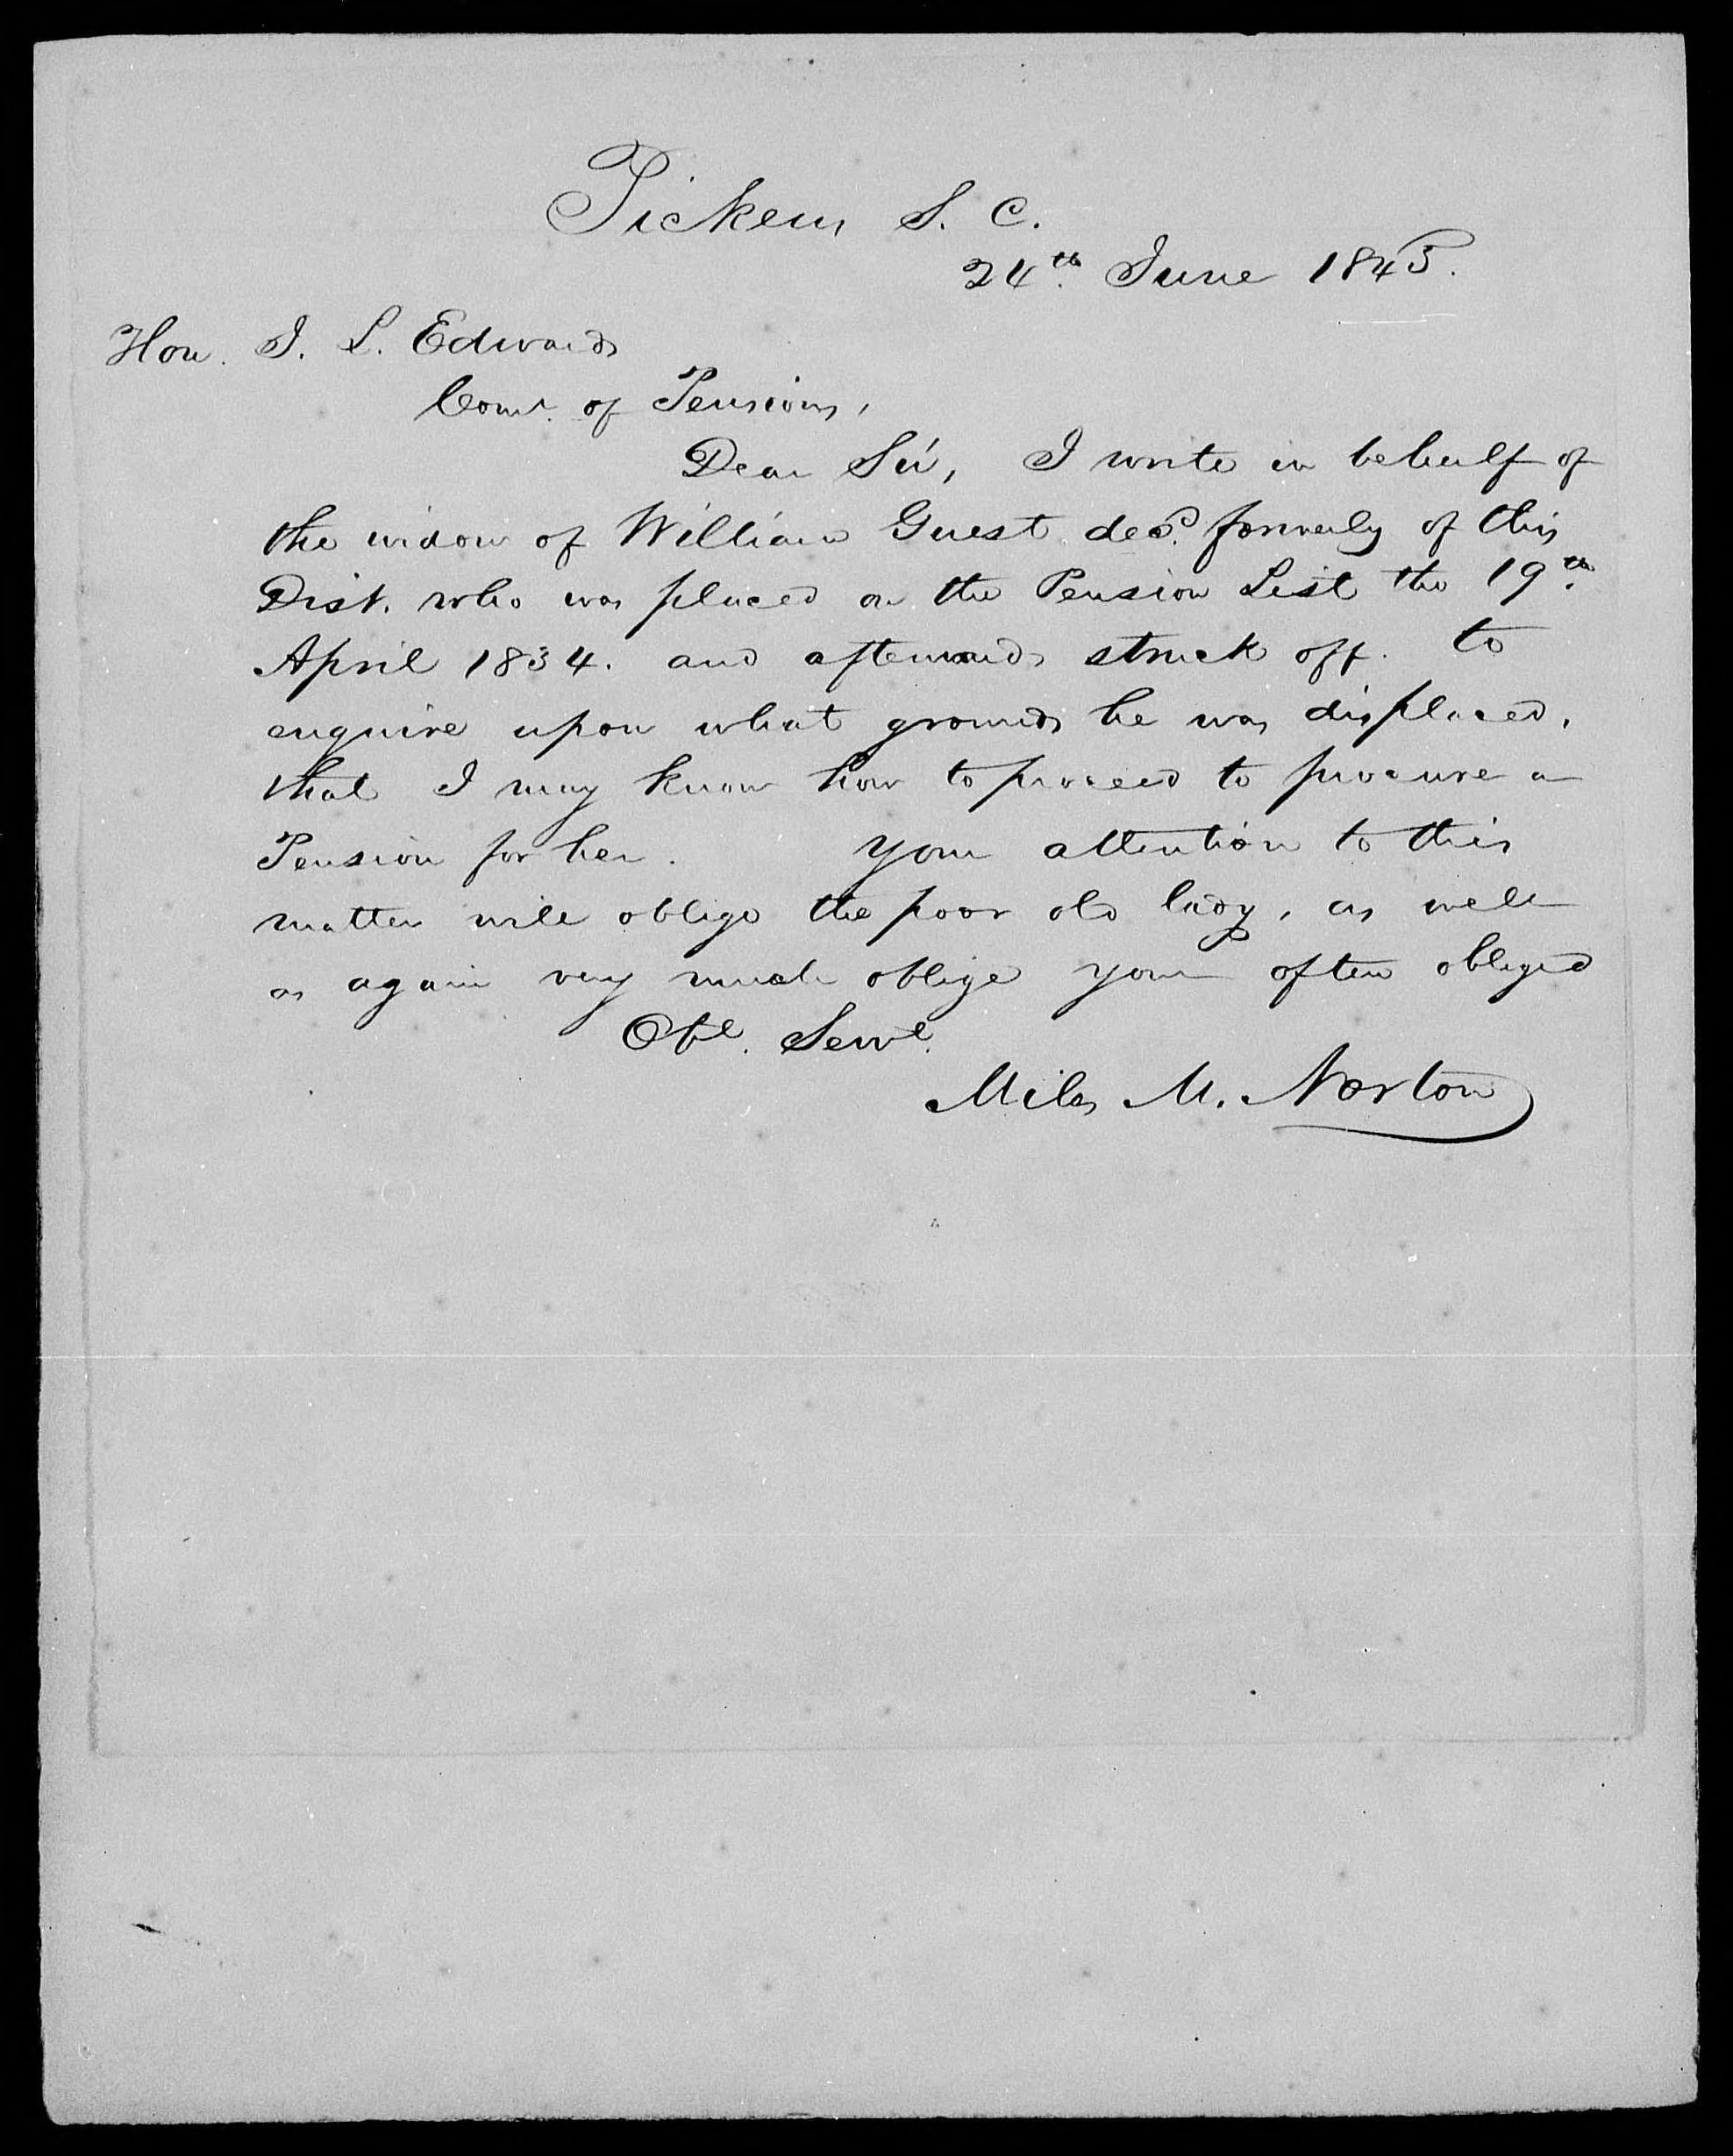 Pickens S. C.
24th June 1845.
Hon. J. L. Edwards
Comr. of Pensions,
Dear Sir, I write in behalf of
the widow of William Guest decd. formerly of this
Dist. who was placed on the Pension List the 19th.
April 1834. and afterwards struck off. to
enquire upon what grounds he was displaced,
that I may know how to proceed to procure a
Pension for her. Your attention to this
matter will oblige the poor old lady, as well
as again very much oblige your often obliged
Obt. Servt.
Miles M. Norton